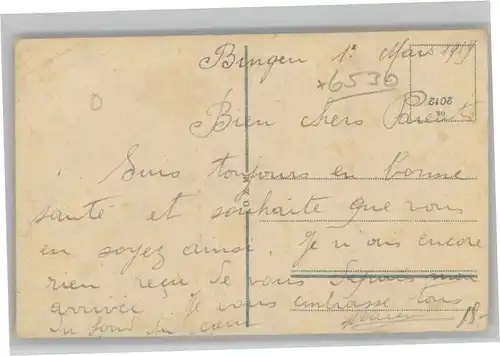 Bingen 1e Mars 1919
*6530
O
© 2012
Bien chers Parents
Suis toujours en bonne
santé et souhaite que vous
en soyez ainsi. Je n'ais encore
rien reçu de vous depuis mon
arrivée. Je vous embrasse tous
du fond du cœur
18-